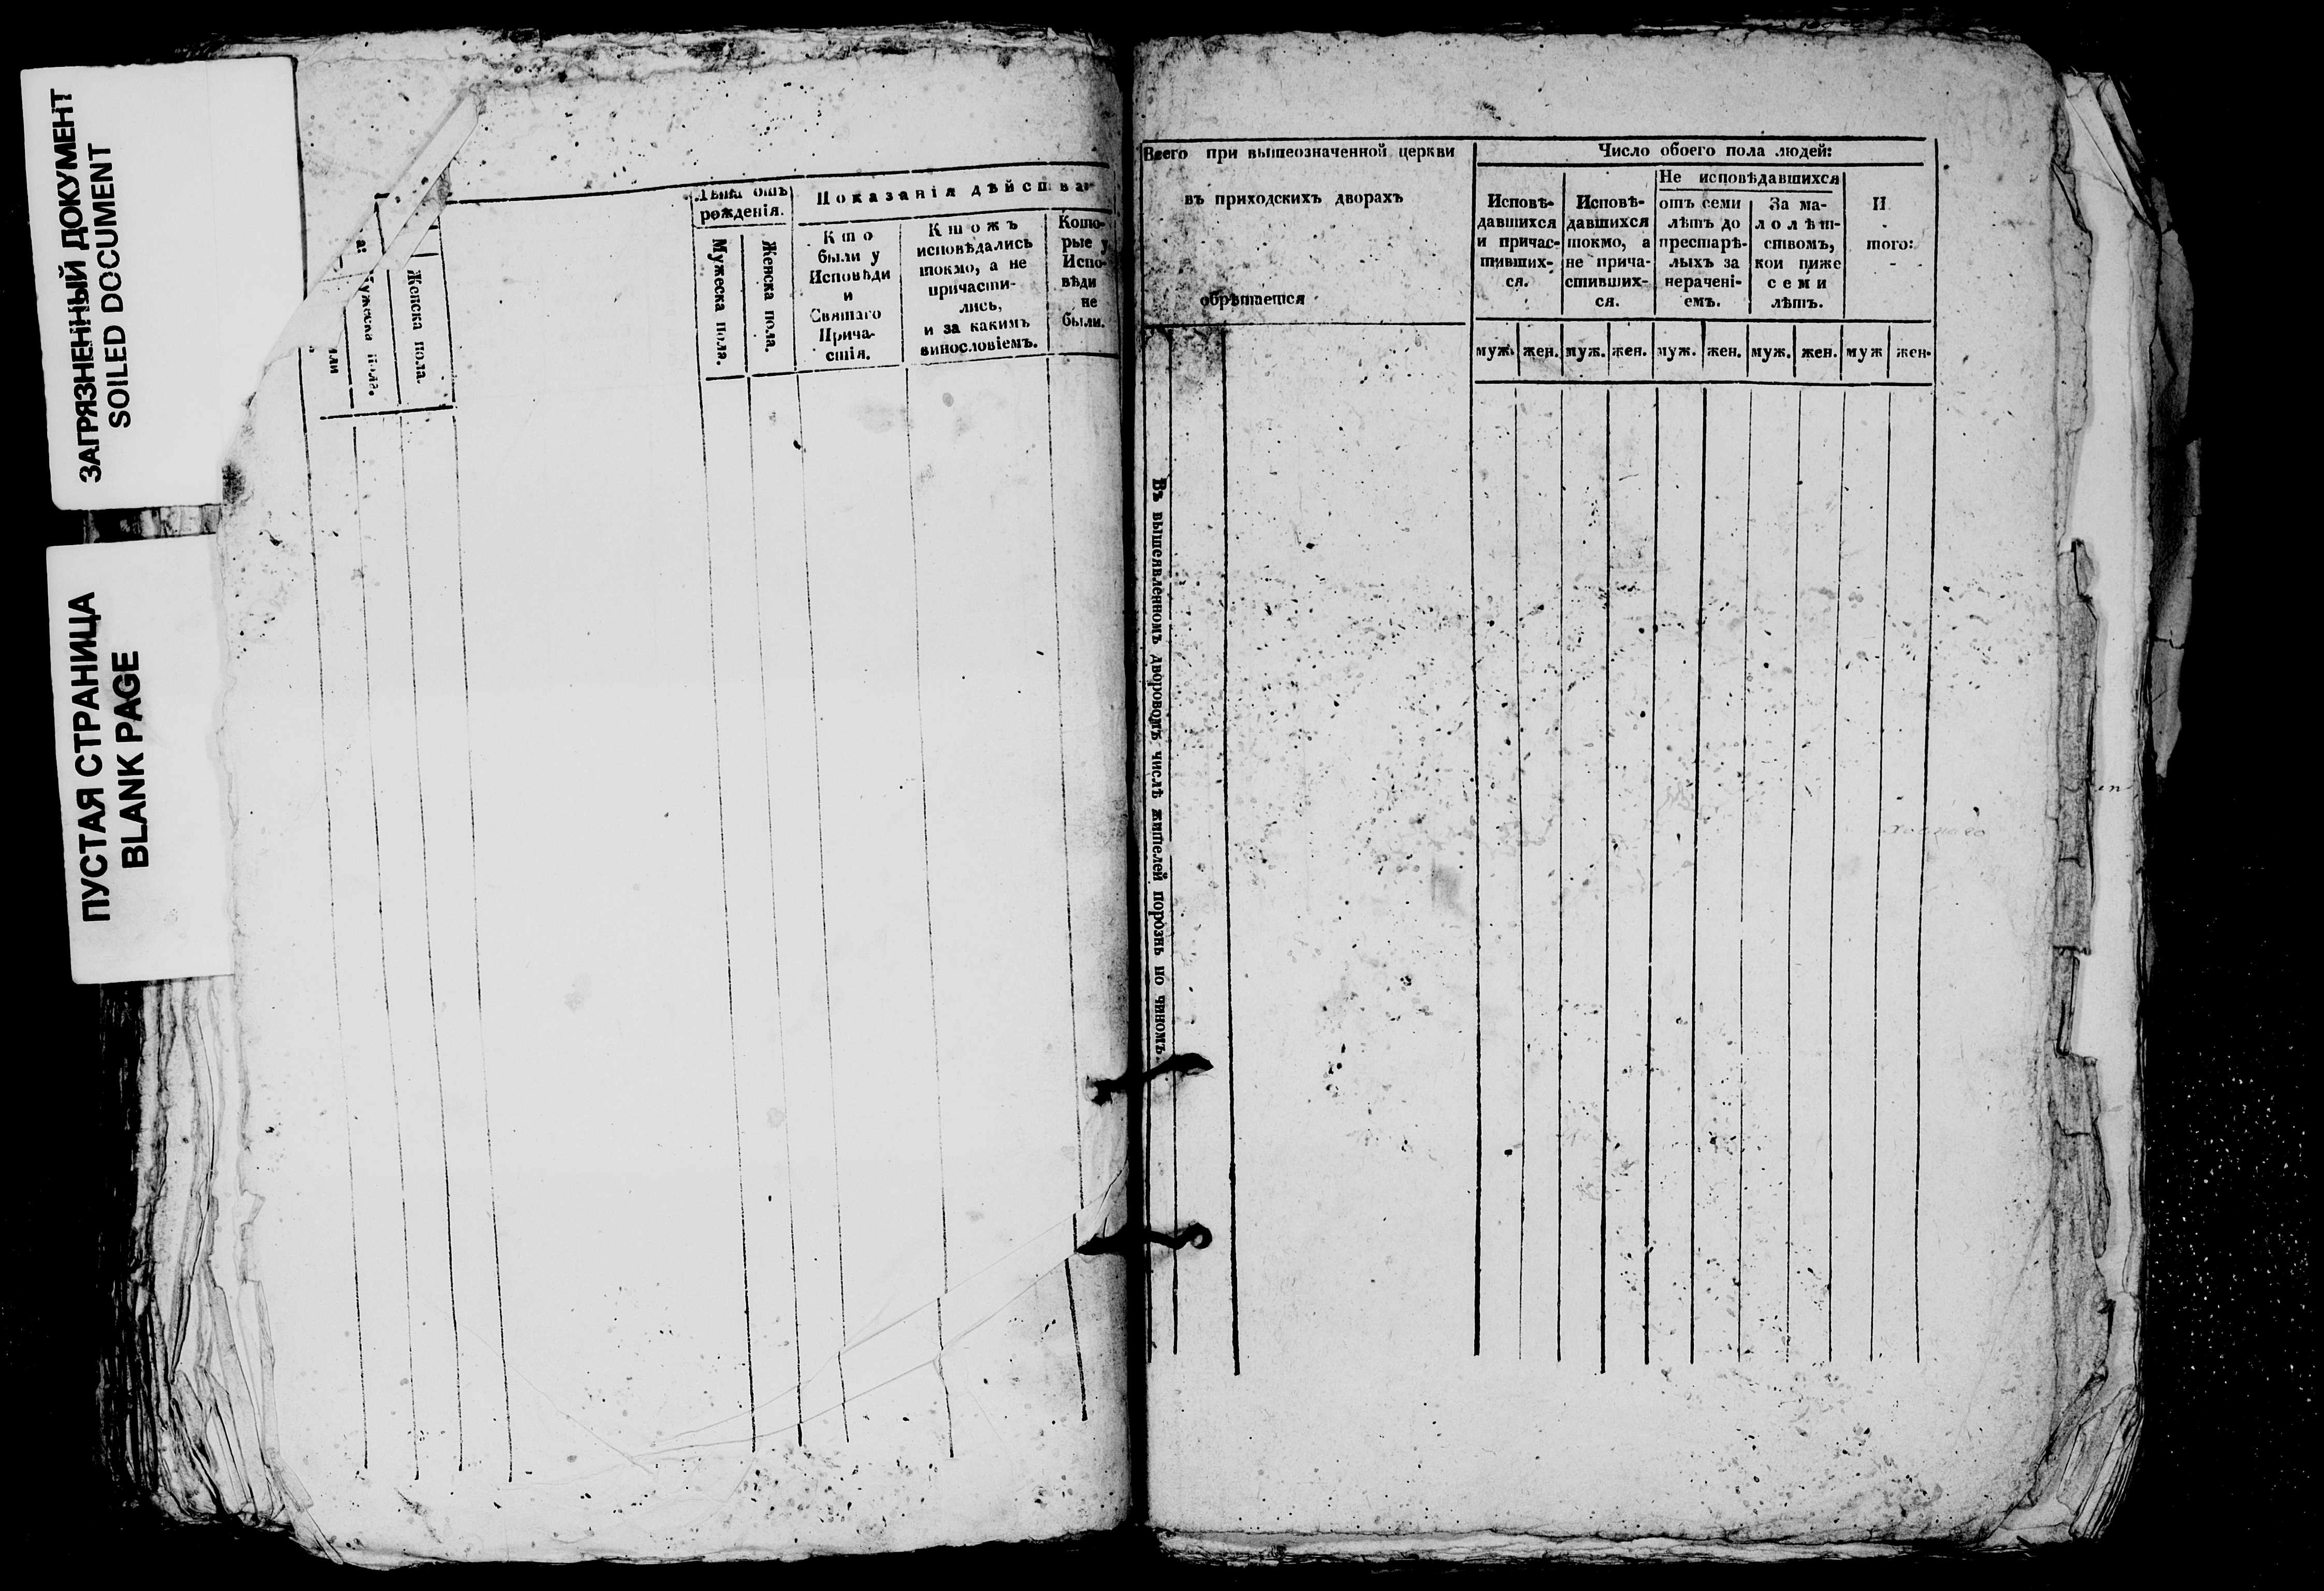 ЗАГРЯЗНЕННЫЙ ДОКУМЕНТ
SOILED DOCUMENT
ПУСТАЯ СТРАНИЦА
BLANK PAGE
Женска пола.
Лѣта отъ
рожденія.
Мужеска пола.
Женска пола.
Показанія дѣйства
Кто
были у
Исповѣди
и
Святаго
Прича-
стія.
Ктожъ
исповѣдались
токмо, а не
причасти-
лись,
и за какимъ
винословіемъ.
Кото-
рые у
Испо-
вѣди
не
были.
Всего при вышеозначенной церкви
въ приходскихъ дворахъ
обрѣтается
Въ вышеявленномъ дворовомъ числѣ жителей порознь по чиномъ.
Число обоего пола людей:
Исповѣ-
давшихся
и причас-
тивших-
ся.
Исповѣ-
давшихся
токмо, а
не прича-
стивших-
ся.
Не исповѣдавшихся
отъ семи
лѣтъ до
престарѣ-
лыхъ за
нерачені-
емъ.
За ма-
лолѣт-
ствомъ,
кои ниже
семи
лѣтъ.
И
того:
муж. жен. муж. жен. муж. жен. муж. жен. муж жен.